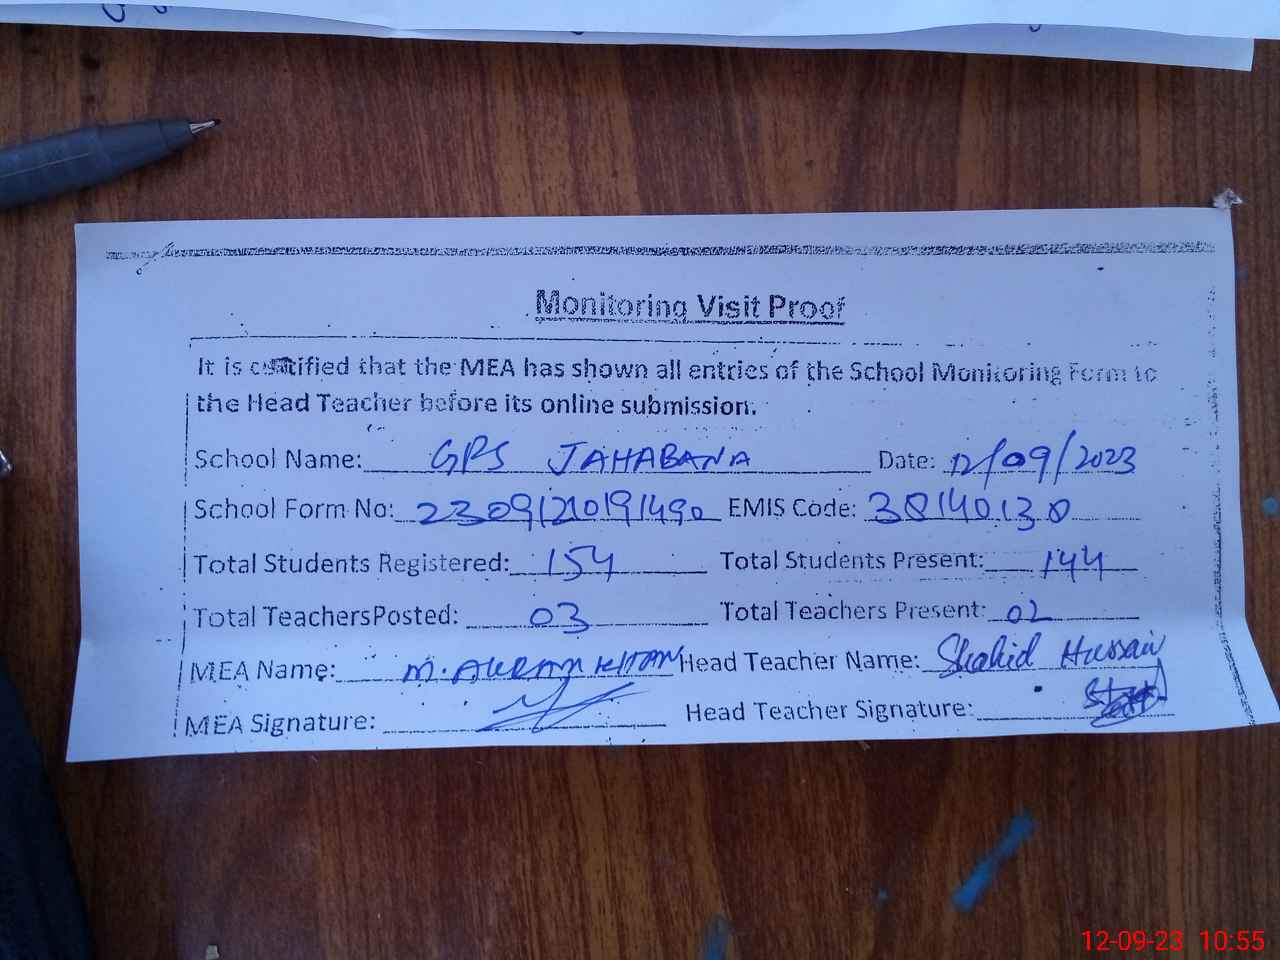 Monitoring Visit Proof
It is certified that the MEA has shown all entries of the School Monitoring Form to
the Head Teacher before its online submission.
School Name: GPS JAHABANA Date: 12/09/2023
School Form No: 23091210191490 EMIS Code: 38140138
Total Students Registered: 154 Total Students Present: 144
Total TeachersPosted: 03 Total Teachers Present: 02
MEA Name: M. AKRAM KHAN Head Teacher Name: Shahid Hussain
MEA Signature: Head Teacher Signature:
12-09-23 10:55